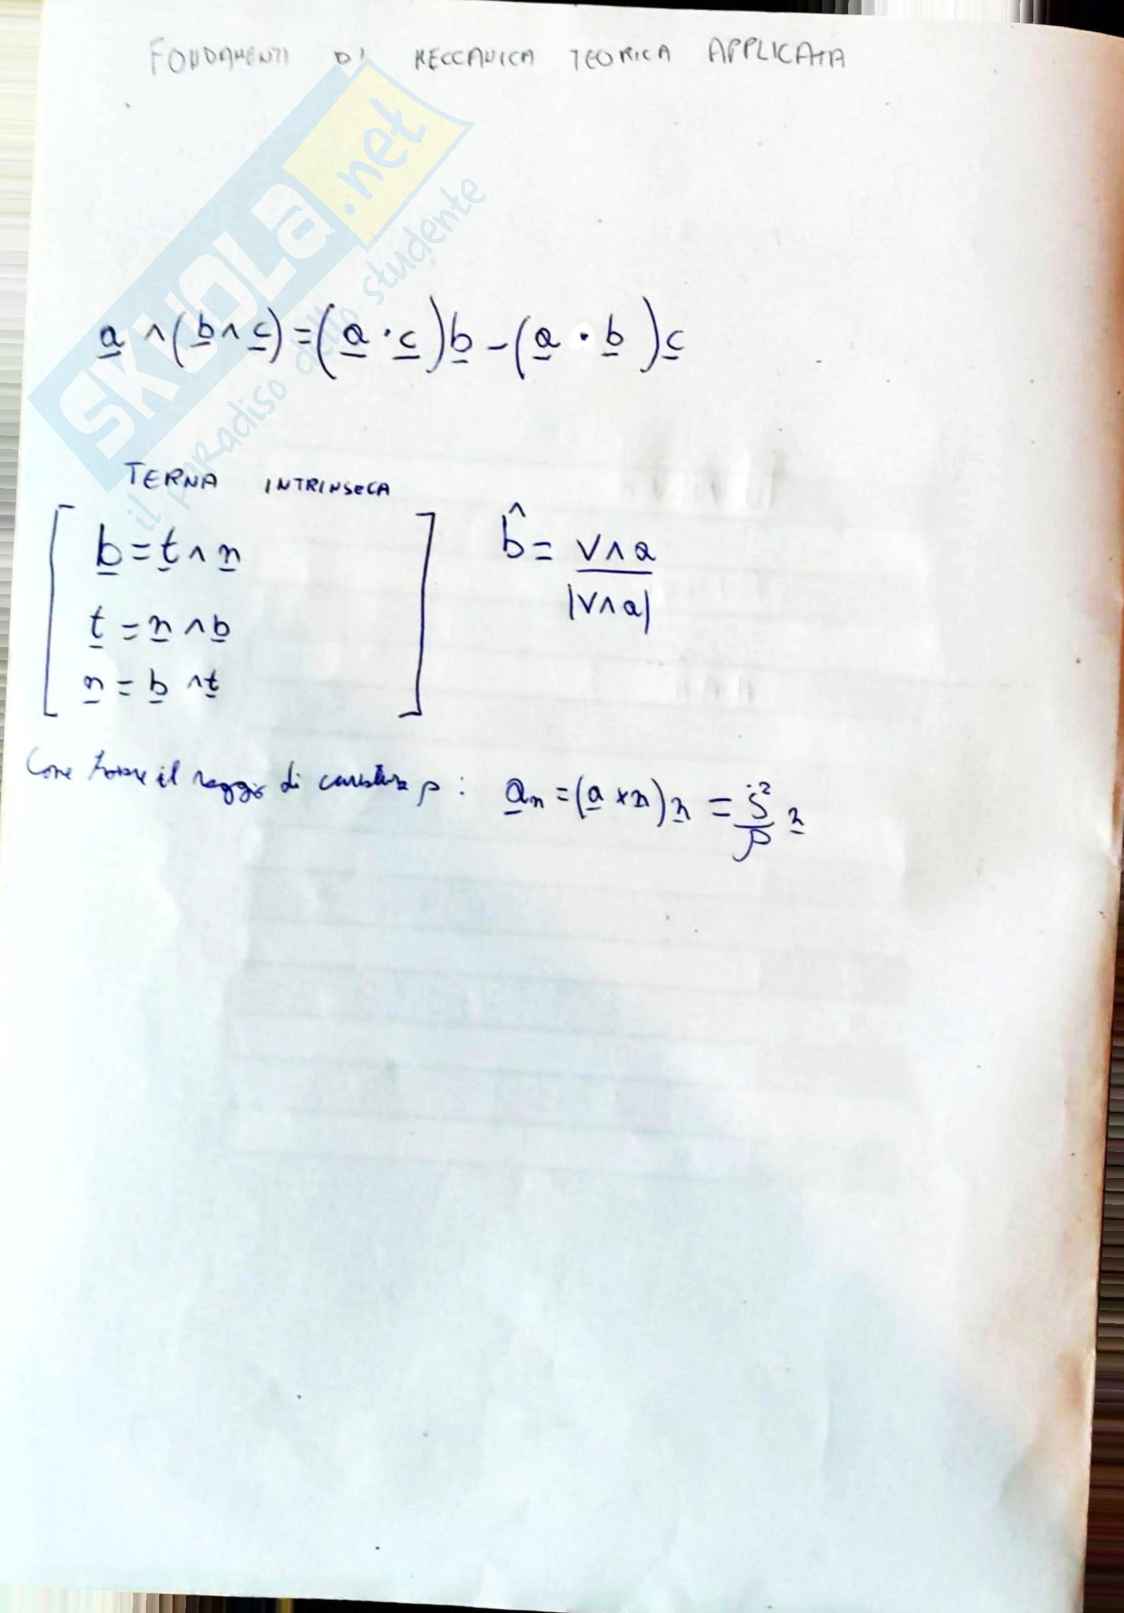 FONDAMENTI DI MECCANICA TEORICA APPLICATA
SKUOLA.net
il paradiso dello studente
a ∧ (b ∧ c) = (a · c) b - (a · b) c
TERNA INTRINSECA
b = t ∧ n
t = n ∧ b
n = b ∧ t
b̂ = v ∧ a / |v ∧ a|
Come trovare il raggio di curvatura ρ : a_n = (a × n) n = ṡ² / ρ n